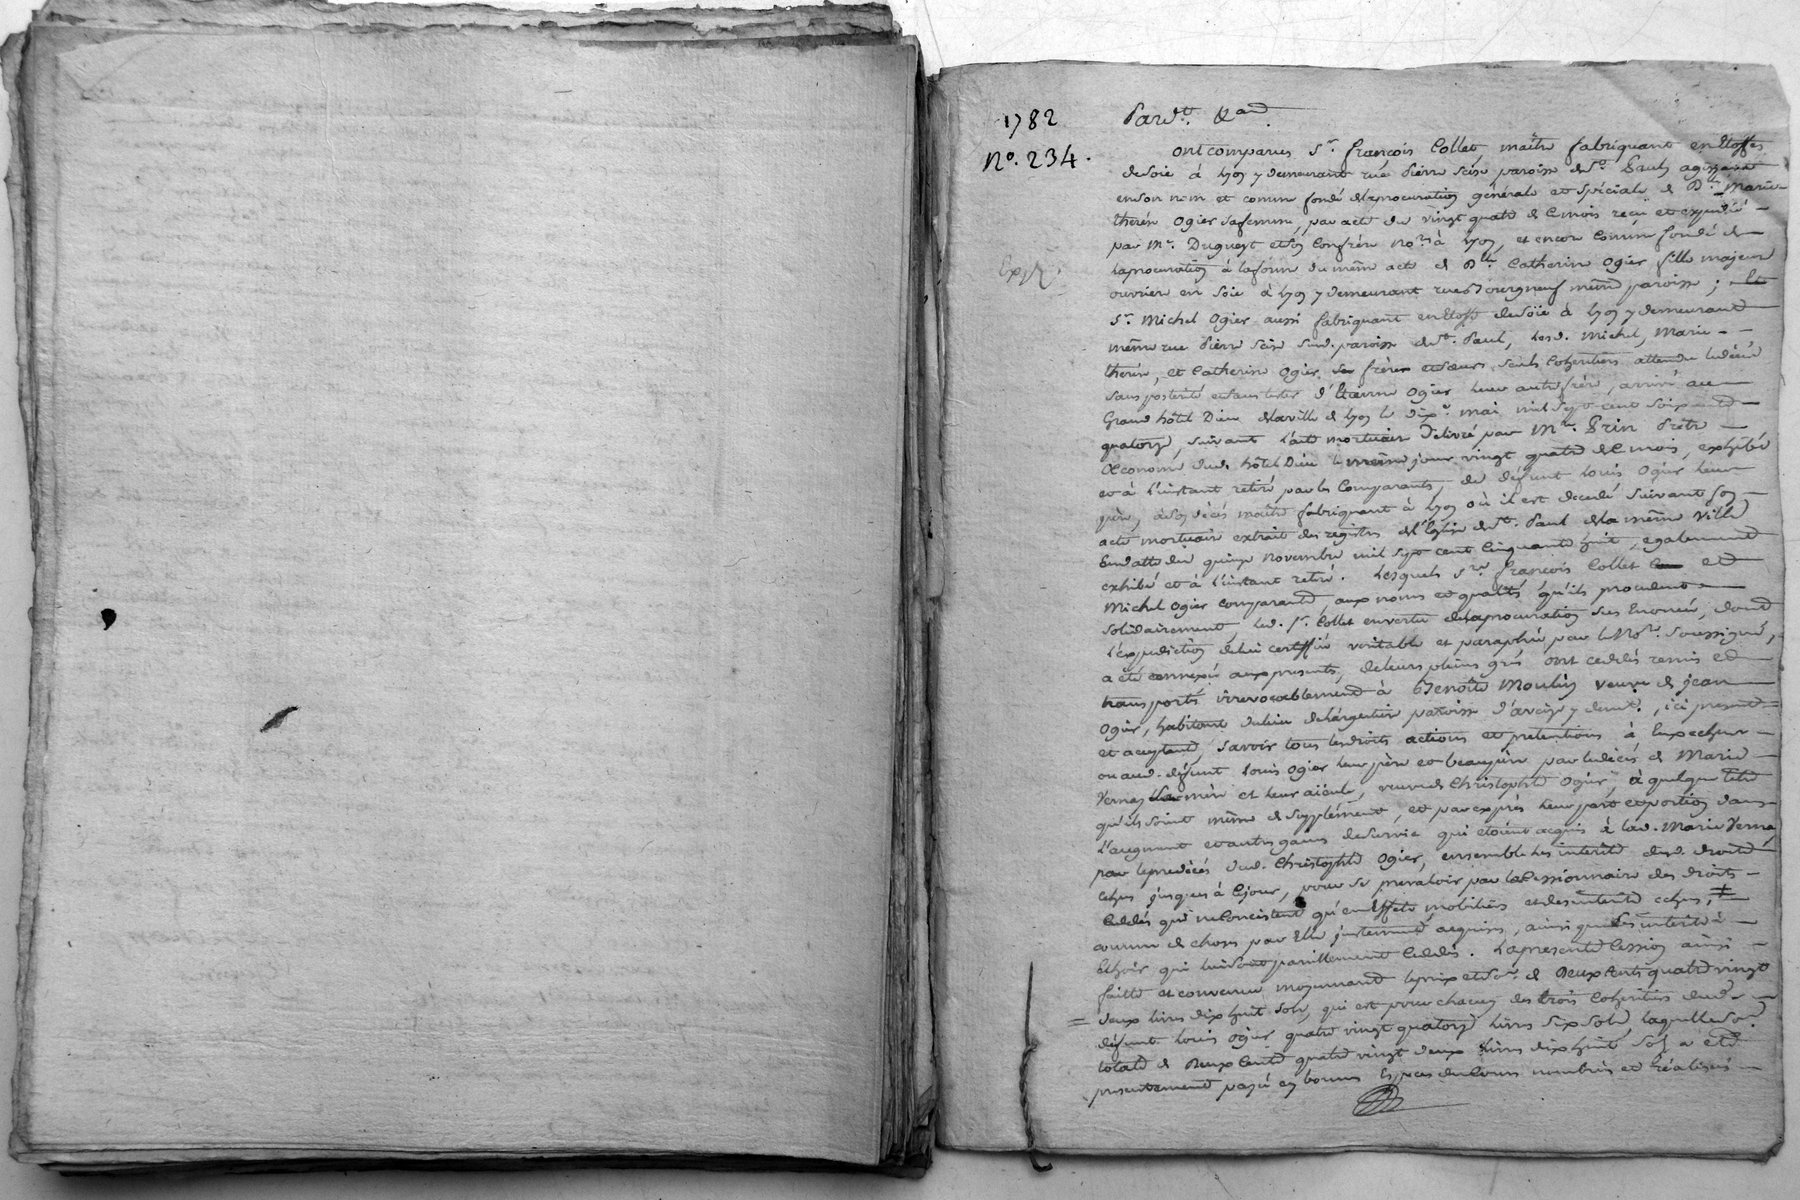 1782
N.° 234.
Pard.t &a
ont comparus S.r françois Collet, maître fabriquant en Etoffes
de soie à Lyon y demeurant rue Pierre Scise paroisse de S.t Paul, agissant
en son nom et comme fondé de la procuration générale et spéciale de D.lle Marie
therese Ogier sa femme, par acte du vingt quatre de ce mois reçu et expedié
par M.e Dugueyt et son Confrère no.res à Lyon, et encore comme fondé de
la procuration à la forme du même acte de D.lle Catherine Ogier fille majeure
ouvriere en soie à Lyon y demeurant rue Bourgneuf même paroisse ; Et
S.r Michel Ogier aussi fabriquant en Etoffes de soie à Lyon y demeurant
même rue Pierre Scise sud. paroisse de S.t Paul, lesd. Michel, Marie
therese, et Catherine Ogier frères et sœurs, seuls Coheritiers attendu le décès
sans posterité et sans tester d'Etienne Ogier leur autre frère, arrivé au
Grand hôtel Dieu de la ville de Lyon le dix.e mai mil sept cent soixante
quatorze, suivant l'acte mortuaire delivré par M.re Prin Prêtre
Œconome dud. hôtel Dieu le même jour vingt quatre de ce mois, exhibé
et à l'instant retiré par les Comparants, de défunt Louis Ogier leur
père, à son décès maître fabriquant à Lyon où il est decedé suivant son
acte mortuaire extrait des registres de l'Eglise de S.t Paul de la même Ville
En datte du quinze novembre mil sept cent cinquante huit, egalement
exhibé et à l'instant retiré. Lesquels S.rs françois Collet et
Michel Ogier comparants, aux noms et qualités qu'ils procedent
solidairement, led. S.r Collet en vertu de la procuration sus Enoncée, dont
l'expedition de lui certiffiée veritable et paraphée par le No.re soussigné,
a été annexée aux presentes, de leurs pleins grés ont cedés remis et
transportés irrevocablement à Benoîte Moulin veuve de jean
Ogier, habitante du lieu de Largentiere paroisse d'aveize y demt., ici presente
et aceptante, savoir tous les droits actions et pretentions à Eux echeus
ou aud. défunt Louis Ogier leur père et beaupère par le décès de Marie
Vernay mère et leur aieule, veuve de Christophle Ogier, à quelque titre
qu'ils soient même de supplément, et par exprès leur part et portion dans
l'augment et autres gains de survie qui etoient acquis à lad. Marie Vernay
par le predecés dud. Christophle Ogier, ensemble les interêts desd. droits
echus jusques à ce jour, pour se prevaloir par la Cessionnaire des droits
Cedés qui ne Concistent qu'en Effets mobiliers et des interêts echus,
comme de choses par Elle justement acquises, ainsi que des interêts à
Echoir qui lui sont pareillement Cedés. La presente Cession ainsi
faitte et convenue moyennant le prix et so.e de Deux Cents quatre vingt
deux livres dix huit sols, qui est pour chacun des trois Coheritiers dud.
défunt Louis Ogier quatre vingt quatorze livres six sols, laquelle so.e
totale de Deux Cents quatre vingt deux livres dix huit sols a été
presentement payée en bonnes Especes du Cours nombrées et réalisées